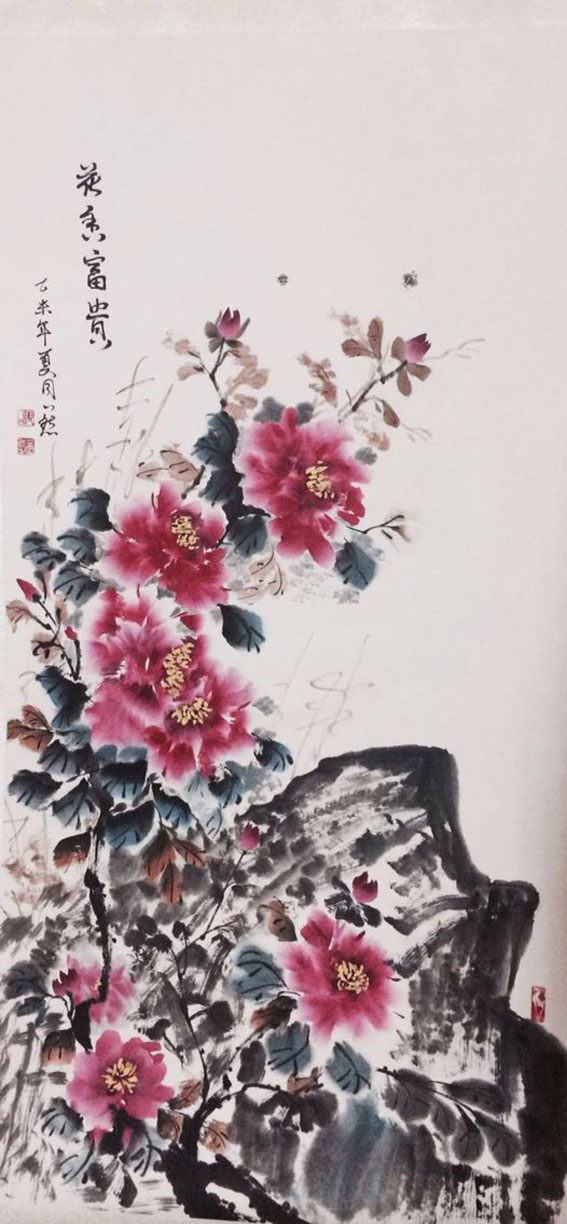 花香富貴
乙未年夏月